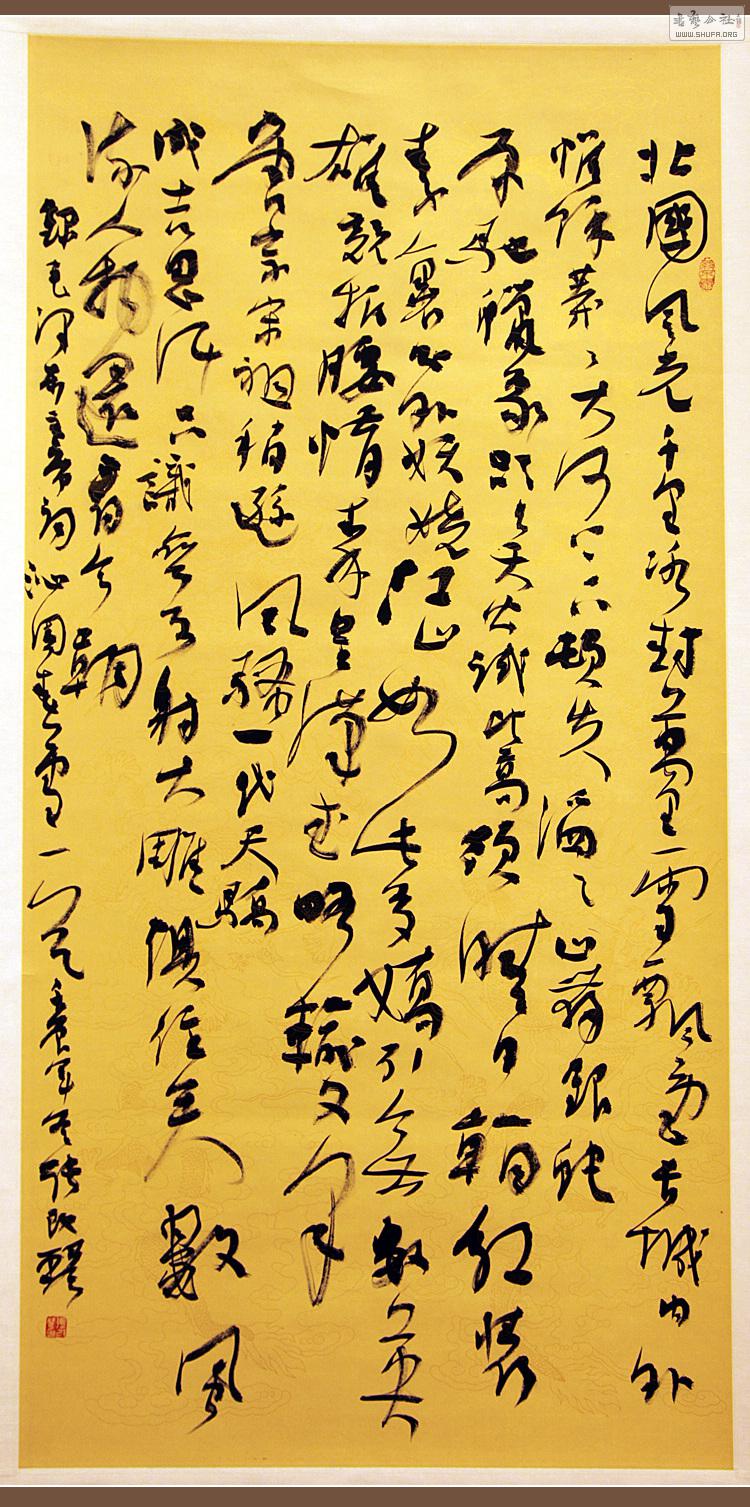 北國風光千里冰封萬里雪飄望長城内外
惟餘莽〻大河上下頓失滔〻山舞銀蛇
原馳蠟象欲與天公試比高須晴日看紅裝
素裹分外妖嬈江山如此多嬌引無數英
雄競折腰惜秦皇漢武略輸文采
唐宗宋祖稍遜風騷一代天驕
成吉思汗只識彎弓射大雕俱往矣數風
流人物還看今朝
錄毛澤東主席詞沁園春雪一首 張改琴
WWW.SHUFA.ORG